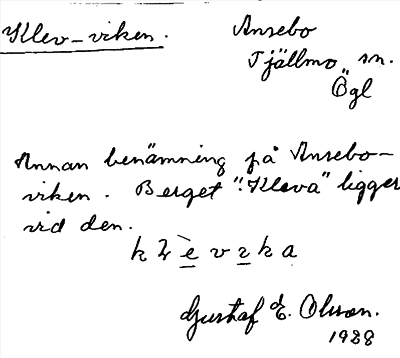 Klev-viken.
Ansebo
Tjällmo sn.
Ögl
Annan benämning på Ansebo-
viken. Berget "Kleva" ligger
vid den.
klèvika
Gustaf E. Olsson.
1928